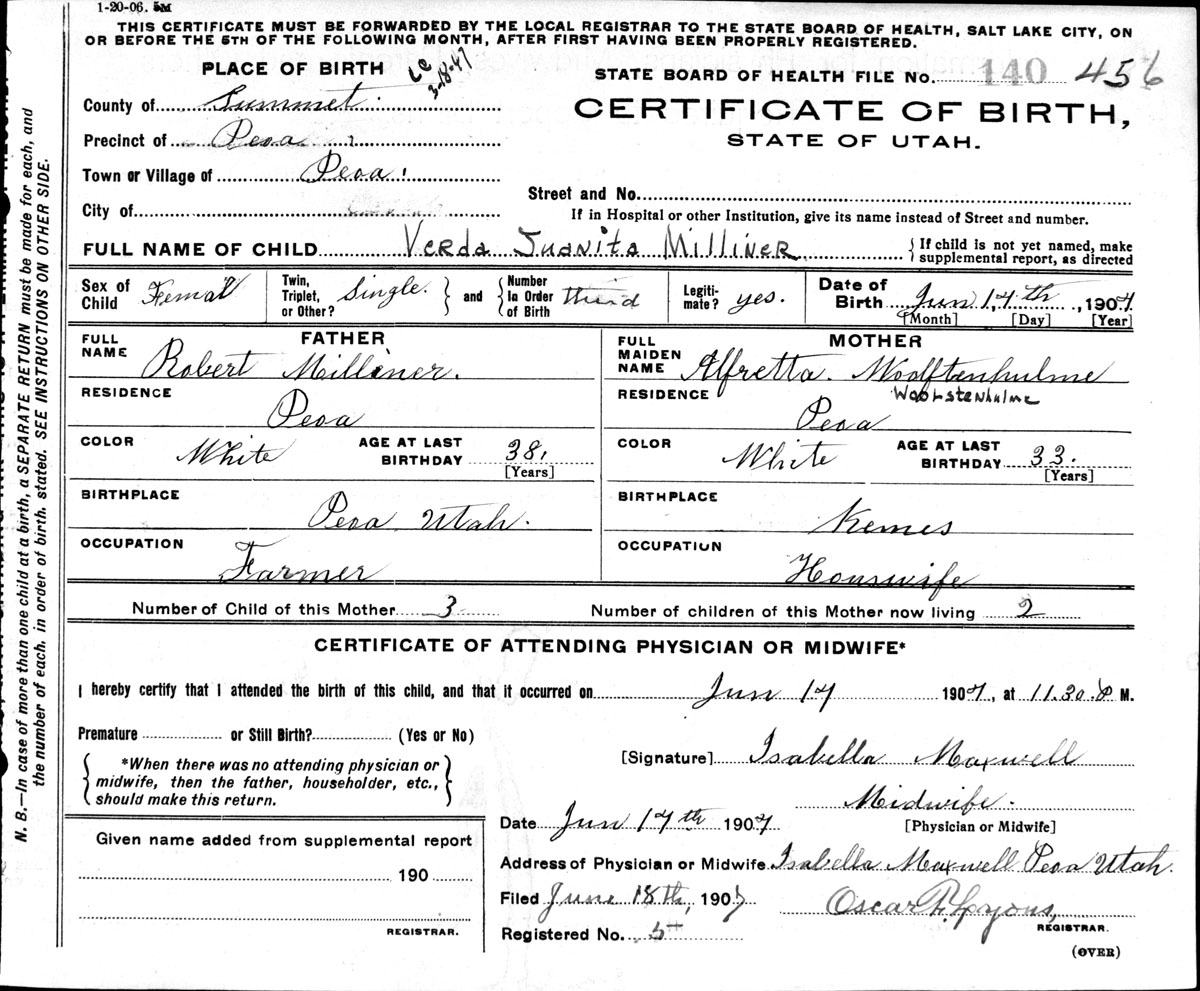 1-20-06. 5M
THIS CERTIFICATE MUST BE FORWARDED BY THE LOCAL REGISTRAR TO THE STATE BOARD OF HEALTH, SALT LAKE CITY, ON
OR BEFORE THE 5TH OF THE FOLLOWING MONTH, AFTER FIRST HAVING BEEN PROPERLY REGISTERED.
PLACE OF BIRTH
3-18-47
STATE BOARD OF HEALTH FILE No. 140 456
County of Summet
CERTIFICATE OF BIRTH,
Precinct of Peoa
STATE OF UTAH.
Town or Village of Peoa
Street and No.
City of
If in Hospital or other Institution, give its name instead of Street and number.
FULL NAME OF CHILD Verda Juanita Milliner { If child is not yet named, make supplemental report, as directed
Sex of Child Femal Twin, Triplet, or Other? Single. } and { Number In Order of Birth third Legiti-mate? yes. Date of Birth Jun, 17th, 1907
[Month] [Day] [Year]
FATHER
FULL NAME Robert Milliner.
RESIDENCE
Peoa
COLOR White AGE AT LAST BIRTHDAY 38,
[Years]
BIRTHPLACE
Peoa Utah.
OCCUPATION
Farmer
MOTHER
FULL MAIDEN NAME Alfretta. Woolftenhulme
RESIDENCE Woolstenhulme
Peoa
COLOR White AGE AT LAST BIRTHDAY 33.
[Years]
BIRTHPLACE
Kemes
OCCUPATION
Houswife
Number of Child of this Mother 3 Number of children of this Mother now living 2
CERTIFICATE OF ATTENDING PHYSICIAN OR MIDWIFE*
I hereby certify that I attended the birth of this child, and that it occurred on Jun 17 1907, at 11.30. P M.
Premature or Still Birth? (Yes or No)
{ *When there was no attending physician or midwife, then the father, householder, etc., should make this return. }
[Signature] Isabella Maxwell
Midwife.
[Physician or Midwife]
Date Jun 17th 1907
Given name added from supplemental report
190
REGISTRAR.
Address of Physician or Midwife Isabella Maxwell Peoa Utah.
Filed June 18th, 1907 Oscar F. Lyons,
REGISTRAR.
Registered No. 5
(OVER)
N. B.—In case of more than one child at a birth, a SEPARATE RETURN must be made for each, and
the number of each, in order of birth, stated. SEE INSTRUCTIONS ON OTHER SIDE.